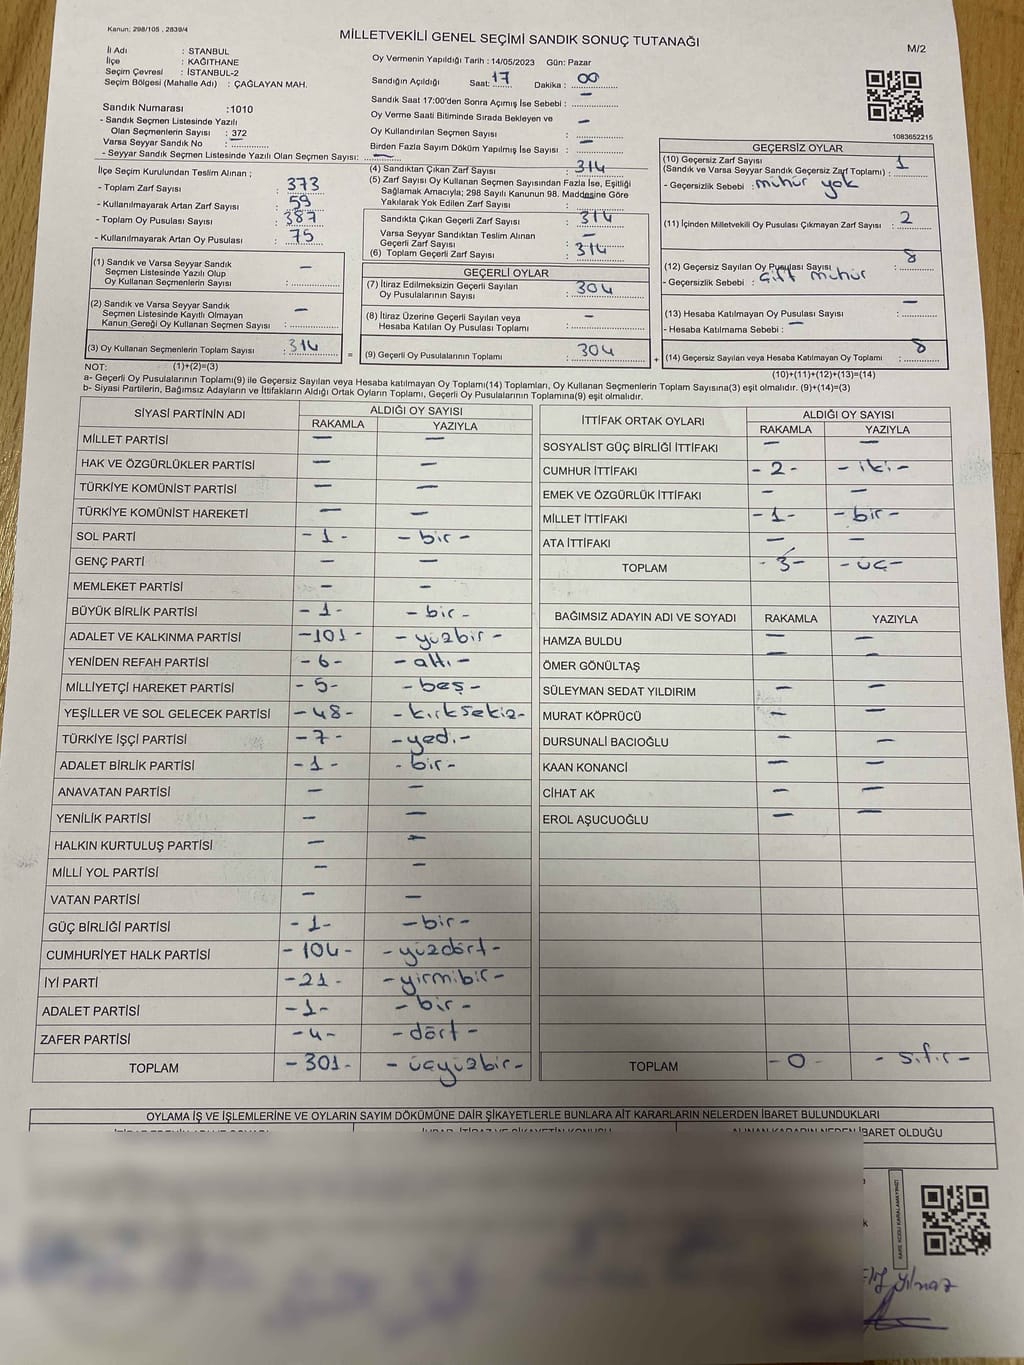 Kanun: 298/105 , 2839/4
MİLLETVEKİLİ GENEL SEÇİMİ SANDIK SONUÇ TUTANAĞI
M/2
İl Adı : STANBUL
İlçe : KAĞITHANE
Seçim Çevresi : İSTANBUL-2
Seçim Bölgesi (Mahalle Adı) : ÇAĞLAYAN MAH.
Oy Vermenin Yapıldığı Tarih : 14/05/2023 Gün: Pazar
Sandığın Açıldığı Saat: 17 Dakika : 00
Sandık Saat 17:00'den Sonra Açımış İse Sebebi : –
Oy Verme Saati Bitiminde Sırada Bekleyen ve
Oy Kullandırılan Seçmen Sayısı : –
Birden Fazla Sayım Döküm Yapılmış İse Sayısı : –
1083652215
Sandık Numarası : 1010
- Sandık Seçmen Listesinde Yazılı
Olan Seçmenlerin Sayısı : 372
Varsa Seyyar Sandık No : –
- Seyyar Sandık Seçmen Listesinde Yazılı Olan Seçmen Sayısı: –
İlçe Seçim Kurulundan Teslim Alınan ;
- Toplam Zarf Sayısı : 373
- Kullanılmayarak Artan Zarf Sayısı : 59
- Toplam Oy Pusulası Sayısı : 387
- Kullanılmayarak Artan Oy Pusulası : 75
(1) Sandık ve Varsa Seyyar Sandık
Seçmen Listesinde Yazılı Olup
Oy Kullanan Seçmenlerin Sayısı : –
(2) Sandık ve Varsa Seyyar Sandık
Seçmen Listesinde Kayıtlı Olmayan
Kanun Gereği Oy Kullanan Seçmen Sayısı : –
(3) Oy Kullanan Seçmenlerin Toplam Sayısı : 314
(4) Sandıktan Çıkan Zarf Sayısı : 314
(5) Zarf Sayısı Oy Kullanan Seçmen Sayısından Fazla İse, Eşitliği
Sağlamak Amacıyla; 298 Sayılı Kanunun 98. Maddesine Göre
Yakılarak Yok Edilen Zarf Sayısı :
Sandıkta Çıkan Geçerli Zarf Sayısı : 314
Varsa Seyyar Sandıktan Teslim Alınan
Geçerli Zarf Sayısı : –
(6) Toplam Geçerli Zarf Sayısı : 314
GEÇERLİ OYLAR
(7) İtiraz Edilmeksizin Geçerli Sayılan
Oy Pusulalarının Sayısı : 304
(8) İtiraz Üzerine Geçerli Sayılan veya
Hesaba Katılan Oy Pusulası Toplamı : –
= (9) Geçerli Oy Pusulalarının Toplamı : 304 +
GEÇERSİZ OYLAR
(10) Geçersiz Zarf Sayısı
(Sandık ve Varsa Seyyar Sandık Geçersiz Zarf Toplamı) : 1
- Geçersizlik Sebebi : mühür yok
(11) İçinden Milletvekili Oy Pusulası Çıkmayan Zarf Sayısı : 2
(12) Geçersiz Sayılan Oy Pusulası Sayısı : 8
- Geçersizlik Sebebi : Çift mühür
(13) Hesaba Katılmayan Oy Pusulası Sayısı : –
- Hesaba Katılmama Sebebi : –
(14) Geçersiz Sayılan veya Hesaba Katılmayan Oy Toplamı : 8
NOT: (1)+(2)=(3)
(10)+(11)+(12)+(13)=(14)
a- Geçerli Oy Pusulalarının Toplamı(9) ile Geçersiz Sayılan veya Hesaba katılmayan Oy Toplamı(14) Toplamları, Oy Kullanan Seçmenlerin Toplam Sayısına(3) eşit olmalıdır. (9)+(14)=(3)
b- Siyasi Partilerin, Bağımsız Adayların ve İttifakların Aldığı Ortak Oyların Toplamı, Geçerli Oy Pusulalarının Toplamına(9) eşit olmalıdır.
SİYASİ PARTİNİN ADI ALDIĞI OY SAYISI
RAKAMLA YAZIYLA
MİLLET PARTİSİ – –
HAK VE ÖZGÜRLÜKLER PARTİSİ – –
TÜRKİYE KOMÜNİST PARTİSİ – –
TÜRKİYE KOMÜNİST HAREKETİ – –
SOL PARTİ -1- -bir-
GENÇ PARTİ – –
MEMLEKET PARTİSİ – –
BÜYÜK BİRLİK PARTİSİ -1- -bir-
ADALET VE KALKINMA PARTİSİ -101- -yüzbir-
YENİDEN REFAH PARTİSİ -6- -altı-
MİLLİYETÇİ HAREKET PARTİSİ -5- -beş-
YEŞİLLER VE SOL GELECEK PARTİSİ -48- -kırksekiz-
TÜRKİYE İŞÇİ PARTİSİ -7- -yedi-
ADALET BİRLİK PARTİSİ -1- -bir-
ANAVATAN PARTİSİ – –
YENİLİK PARTİSİ – –
HALKIN KURTULUŞ PARTİSİ – –
MİLLİ YOL PARTİSİ – –
VATAN PARTİSİ – –
GÜÇ BİRLİĞİ PARTİSİ -1- -bir-
CUMHURİYET HALK PARTİSİ -104- -yüzdört-
İYİ PARTİ -21- -yirmibir-
ADALET PARTİSİ -1- -bir-
ZAFER PARTİSİ -4- -dört-
TOPLAM -301- -üçyüzbir-
İTTİFAK ORTAK OYLARI ALDIĞI OY SAYISI
RAKAMLA YAZIYLA
SOSYALİST GÜÇ BİRLİĞİ İTTİFAKI – –
CUMHUR İTTİFAKI -2- -iki-
EMEK VE ÖZGÜRLÜK İTTİFAKI – –
MİLLET İTTİFAKI -1- -bir-
ATA İTTİFAKI – –
TOPLAM -3- -üç-
BAĞIMSIZ ADAYIN ADI VE SOYADI RAKAMLA YAZIYLA
HAMZA BULDU – –
ÖMER GÖNÜLTAŞ – –
SÜLEYMAN SEDAT YILDIRIM – –
MURAT KÖPRÜCÜ – –
DURSUNALİ BACIOĞLU – –
KAAN KONANCİ – –
CİHAT AK – –
EROL AŞUCUOĞLU – –
TOPLAM -0- -sıfır-
OYLAMA İŞ VE İŞLEMLERİNE VE OYLARIN SAYIM DÖKÜMÜNE DAİR ŞİKAYETLERLE BUNLARA AİT KARARLARIN NELERDEN İBARET BULUNDUKLARI
ALINAN KARARIN NEDEN İBARET OLDUĞU
KARE KODU KARALAMAYINIZ!
Yılmaz